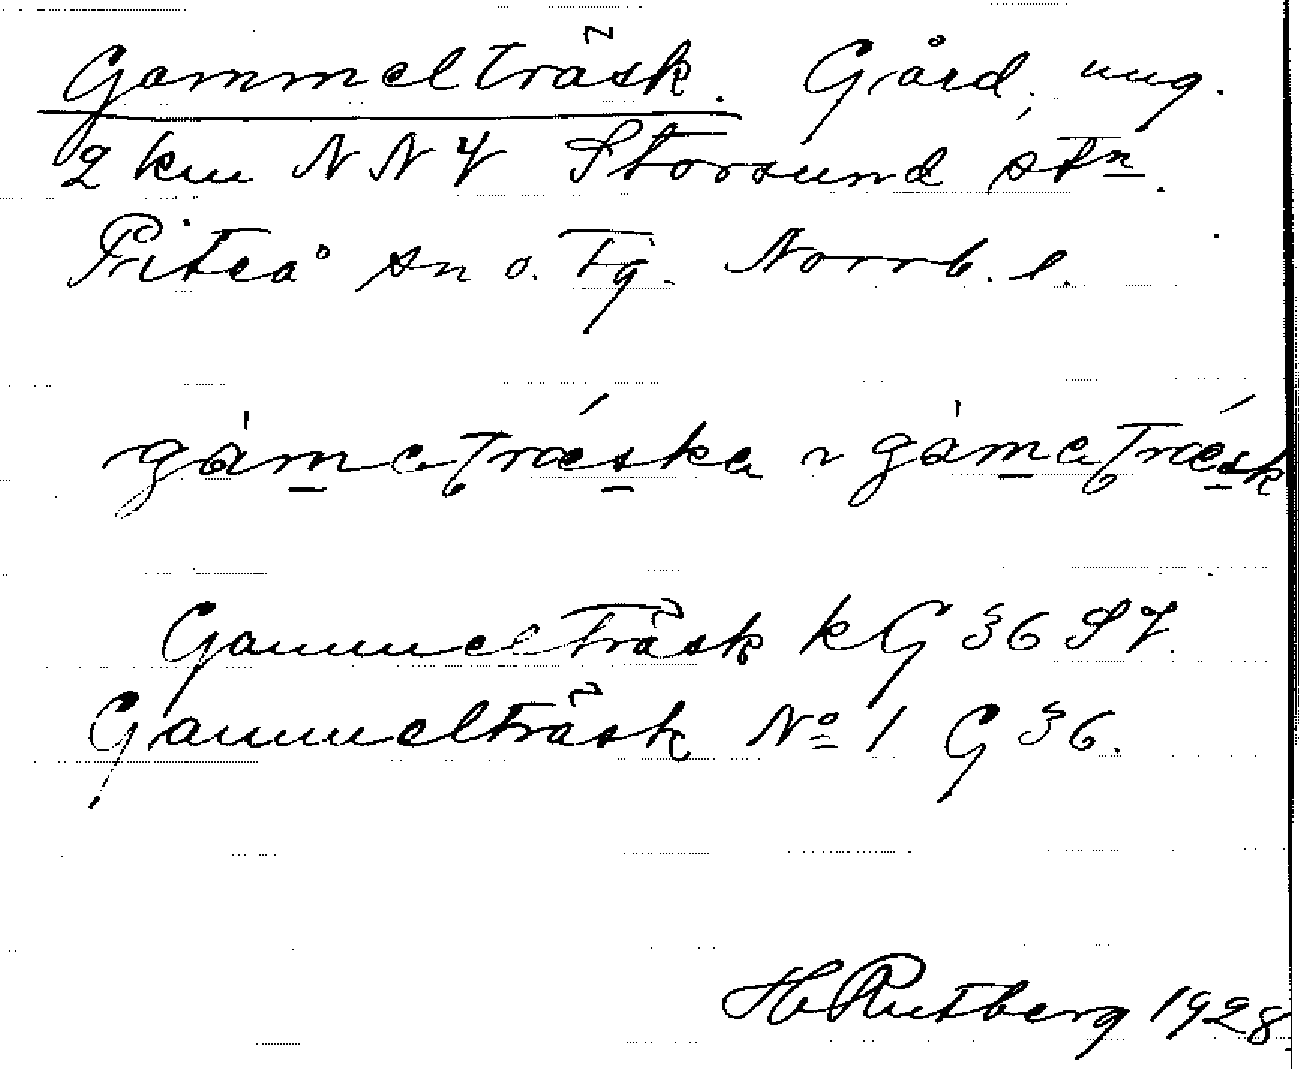 Gammelträsk. Gård, ung.
2 km NNV Storsund stn.
Piteå sn o. Tg. Norrb. l.
gàmetræska ~ gàmetræsk
Gammelträsk kG 36 SV.
Gammelträsk No 1 G 36.
H Rutberg 1928.